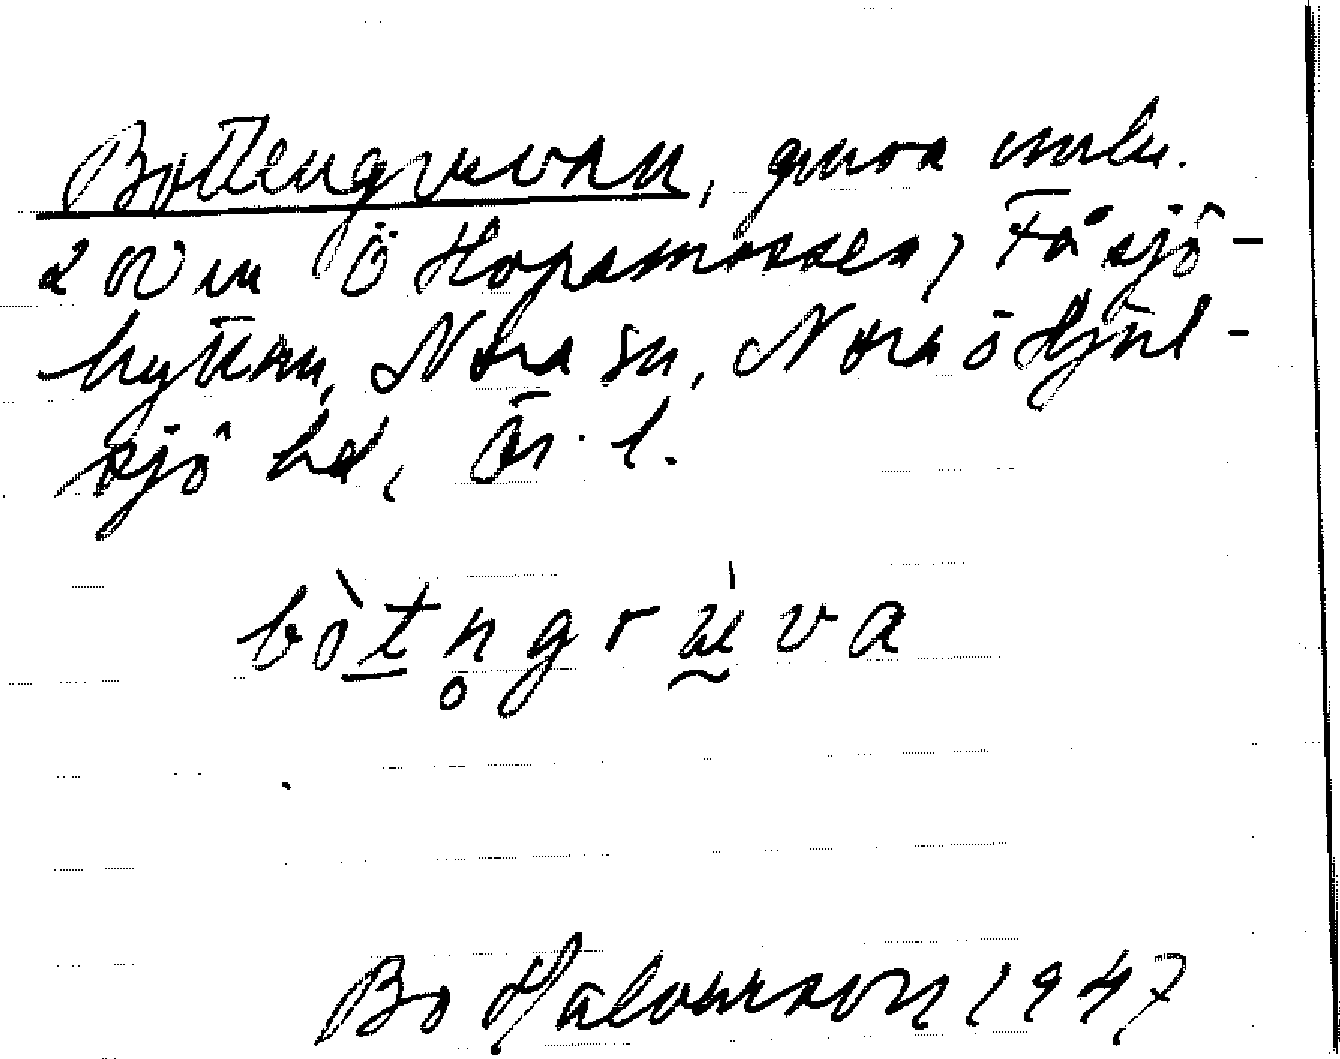 Bottengruvan, gruva omkr.
200 m Ö Hopamossen, Fåsjö-
hyttan, Nora sn, Nora o Hjul-
sjö hd, Ör. l.
bòtn̥grùva
Bo Halvarson 1947